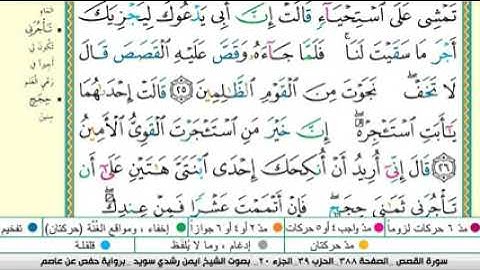 تَمْشِي عَلَى ٱسْتِحْيَآءٍ قَالَتْ إِنَّ أَبِي يَدْعُوكَ لِيَجْزِيَكَ
أَجْرَ مَا سَقَيْتَ لَنَا ۚ فَلَمَّا جَآءَهُۥ وَقَصَّ عَلَيْهِ ٱلْقَصَصَ قَالَ
لَا تَخَفْ ۖ نَجَوْتَ مِنَ ٱلْقَوْمِ ٱلظَّٰلِمِينَ ٢٥ قَالَتْ إِحْدَىٰهُمَا
يَٰٓأَبَتِ ٱسْتَـْٔجِرْهُ ۖ إِنَّ خَيْرَ مَنِ ٱسْتَـْٔجَرْتَ ٱلْقَوِيُّ ٱلْأَمِينُ
٢٦ قَالَ إِنِّيٓ أُرِيدُ أَنْ أُنكِحَكَ إِحْدَى ٱبْنَتَيَّ هَٰتَيْنِ عَلَىٰٓ أَن
تَأْجُرَنِي ثَمَٰنِيَ حِجَجٍ ۖ فَإِنْ أَتْمَمْتَ عَشْرًا فَمِنْ عِندِكَ ۖ
تَأْجُرَنِي
تكون لي
أجيرا في
رعي الغنم
حِجَجٍ
سنين
مدّ ٦ حركات لزوماً مدّ ٢ أو ٤ أو ٦ جوازاً إخفاء، ومواقع الغُنَّة (حركتان) تفخيم
مدّ واجب ٤ أو ٥ حركات مدّ حركتان إدغام، وما لا يُلفظ قلقلة
سورة القصص _ الصفحة ٣٨٨ _ الحزب ٣٩ _ الجزء ٢٠ _ بصوت الشيخ ايمن رشدي سويد _ برواية حفص عن عاصم